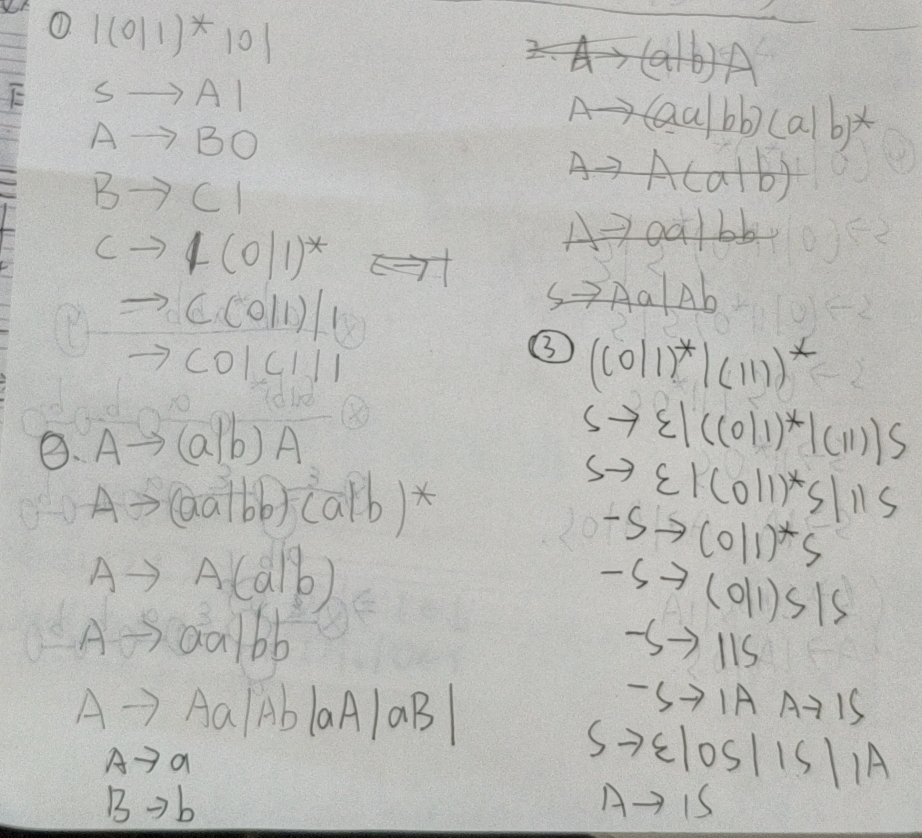 ① 1(0|1)*101
S → A1
A → B0
B → C1
C → 1(0|1)* ⟺
→ C(0|1)|1
→ C0|C1|1
②. A → (a|b)A
A → (aa|bb)(a|b)*
A → A(a|b)
A → aa|bb
A → Aa|Ab|aA|aB|
A → a
B → b
2. A → (a|b)A
A → (aa|bb)(a|b)*
A → A(a|b)
A → aa|bb
S → Aa|Ab
③ ((0|1)*|(11))*
S → ε|((0|1)*|(11))S
S → ε|(0|1)*S|11S
-S → (0|1)*S
-S → (0|1)S|S
-S → 11S
-S → 1A A → 1S
S → ε|0S|1S|1A
A → 1S